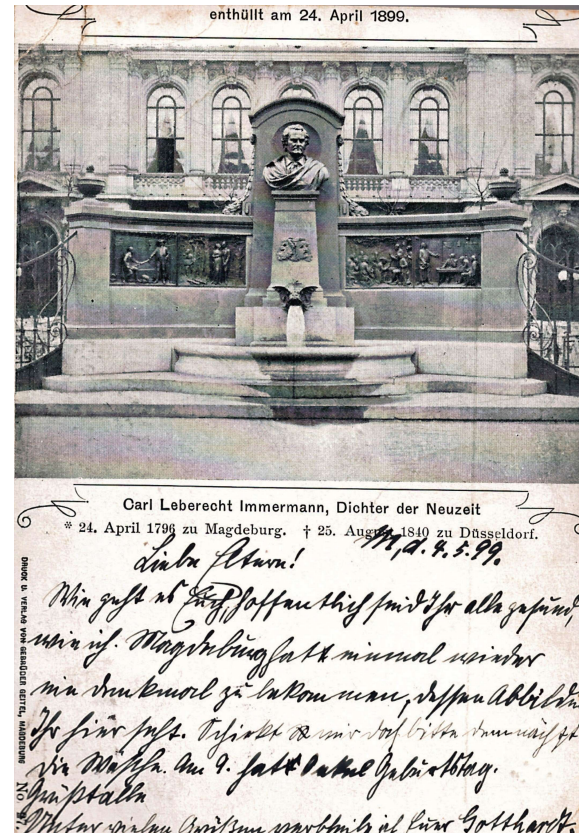 enthüllt am 24. April 1899.
Carl Leberecht Immermann, Dichter der Neuzeit
* 24. April 1796 zu Magdeburg. † 25. August 1840 zu Düsseldorf.
M, d. 4. 5. 99.
Liebe Eltern!
Wie geht es Euch, hoffentlich seid Ihr alle gesund,
wie ich. Magdeburg hatt einmal wieder
ein denkmal zu bekommen, dessen Abbilde
Ihr hier seht. Schickt mir doch bitte demnächst
die Wäsche. Am 9. hatt Onkel Geburtstag.
Grüßt alle
Unter vielen Grüßen verbleib ich Euer Gotthardt
DRUCK U. VERLAG VON GEBRÜDER GEITEL, MAGDEBURG